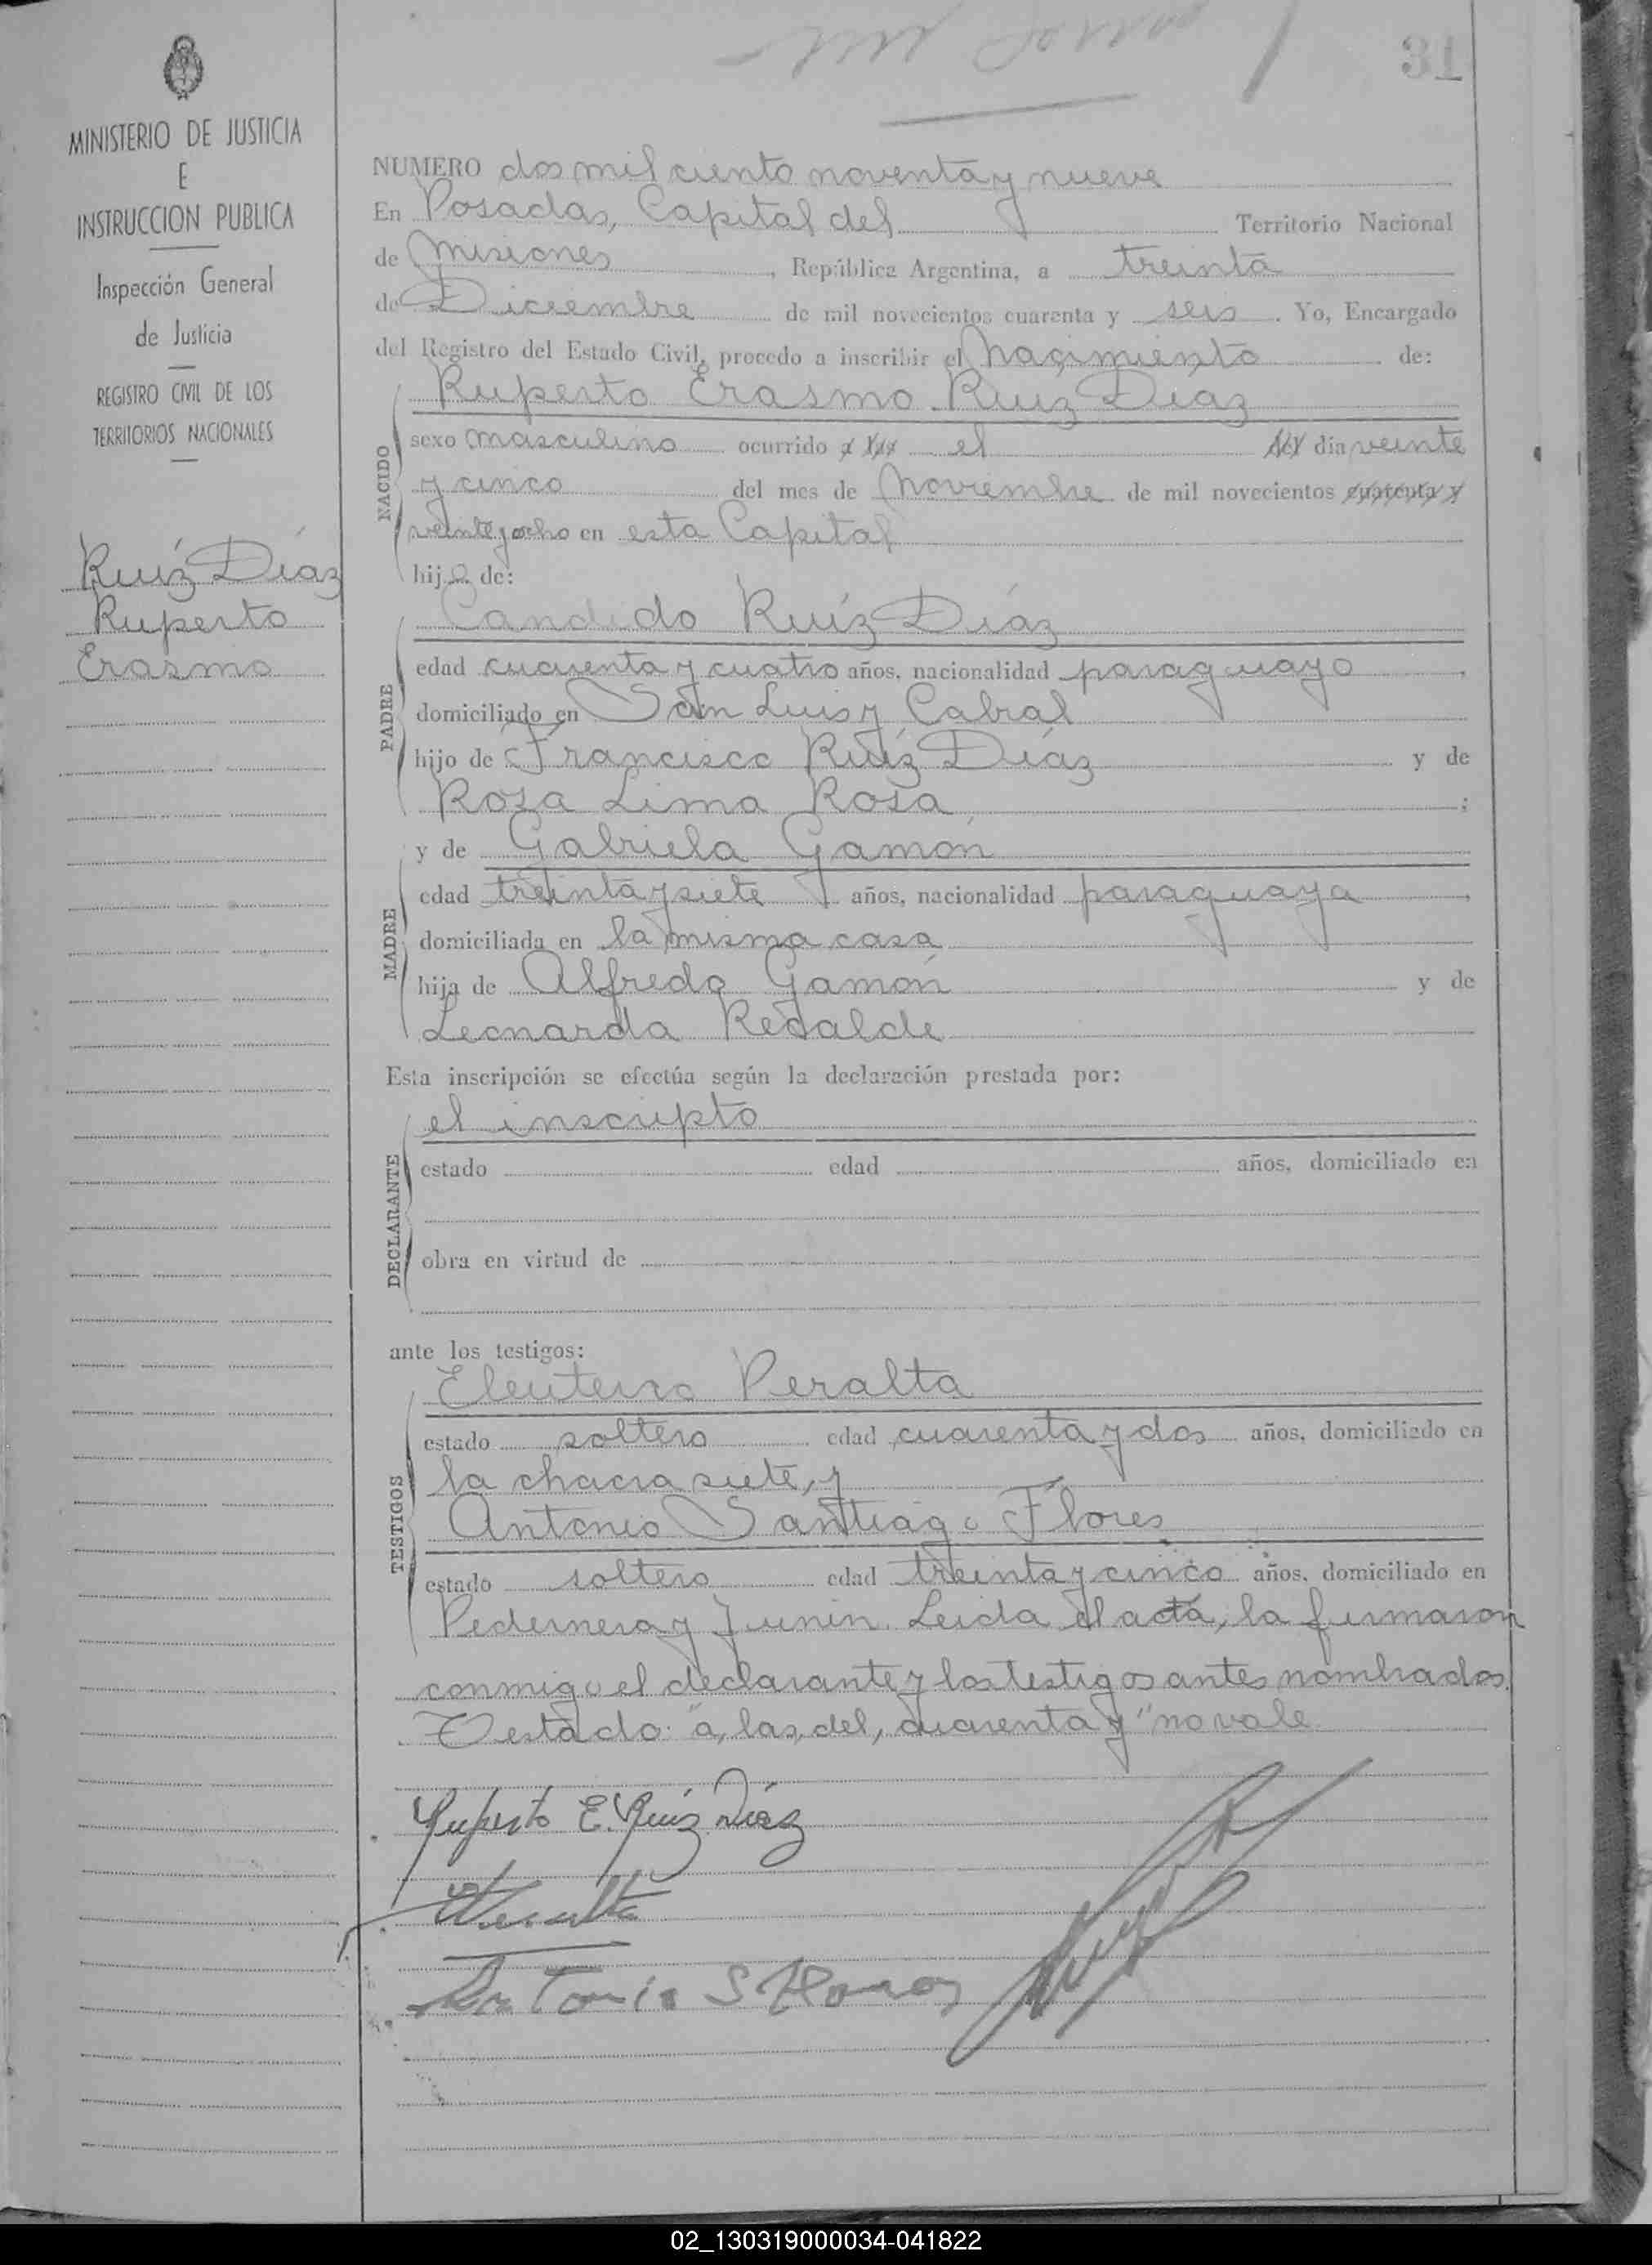 31
MINISTERIO DE JUSTICIA
E
INSTRUCCION PUBLICA
Inspección General
de Justicia
REGISTRO CIVIL DE LOS
TERRITORIOS NACIONALES
Ruíz Díaz
Ruperto
Erasmo
NUMERO dos mil ciento noventa y nueve
En Posadas, Capital del Territorio Nacional
de Misiones, República Argentina, a treinta
de Diciembre de mil novecientos cuarenta y seis. Yo, Encargado
del Registro del Estado Civil, procedo a inscribir el nacimiento de:
NACIDO
Ruperto Erasmo Ruiz Diaz
sexo masculino ocurrido a las el del dia veinte
y cinco del mes de Noviembre de mil novecientos cuarenta y
veinte y ocho en esta Capital
hijo de:
PADRE
Candido Ruíz Díaz
edad cuarenta y cuatro años, nacionalidad paraguayo
domiciliado en San Luis y Cabral
hijo de Francisco Ruíz Díaz y de
Rosa Lima Rosa;
MADRE
y de Gabriela Gamón
edad treinta y siete años, nacionalidad paraguaya
domiciliada en la misma casa
hija de Alfredo Gamón y de
Leonarda Recalde
Esta inscripción se efectúa según la declaración prestada por:
DECLARANTE
el inscripto
estado edad años, domiciliado en
obra en virtud de
ante los testigos:
TESTIGOS
Eleuterio Peralta
estado soltero edad cuarenta y dos años, domiciliado en
la chacra siete, y
Antonio Santiago Flores
estado soltero edad treinta y cinco años, domiciliado en
Pedernera y Junin. Leida el acta, la firmaron
conmigo el declarante y los testigos antes nombrados.
Testado: "a, las, del, cuarenta y" no vale
Ruperto E. Ruíz Díaz
Peralta
Antonio S Flores
02_130319000034-041822